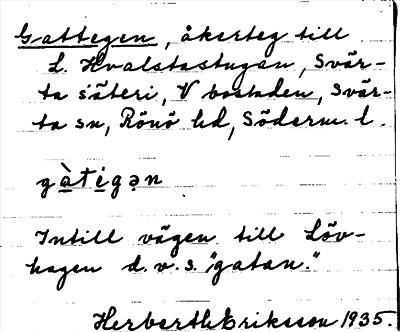 Gattegen, åkerteg till
L. Hvalstastugan, Svär-
ta säteri, V bostaden, Svär-
ta sn, Rönö hd, Söderm. l.
gàtigən
Intill vägen till Löv-
hagen d.v.s. "gatan."
Herberth Eriksson 1935.